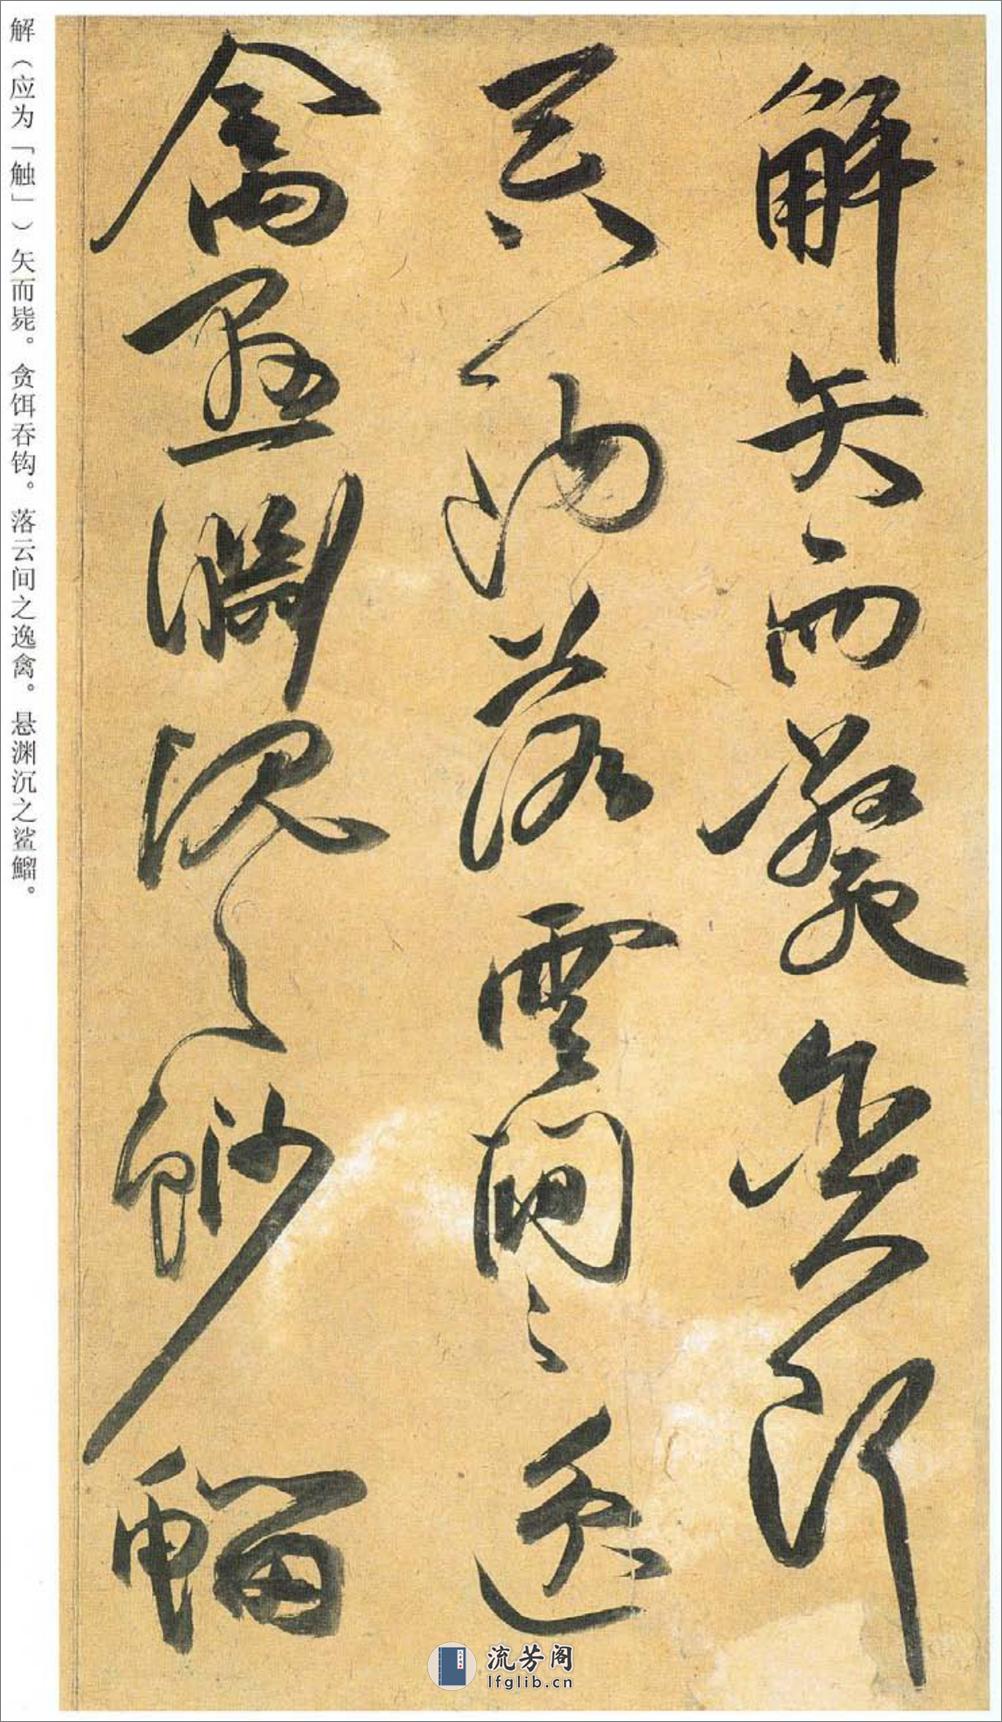 解矢而斃貪餌
吞鉤落雲間之逸
禽懸淵沉之魦鰡
解（应为「触」）矢而毙。贪饵吞钩。落云间之逸禽。悬渊沉之鲨鰡。
流芳阁
lfglib.cn